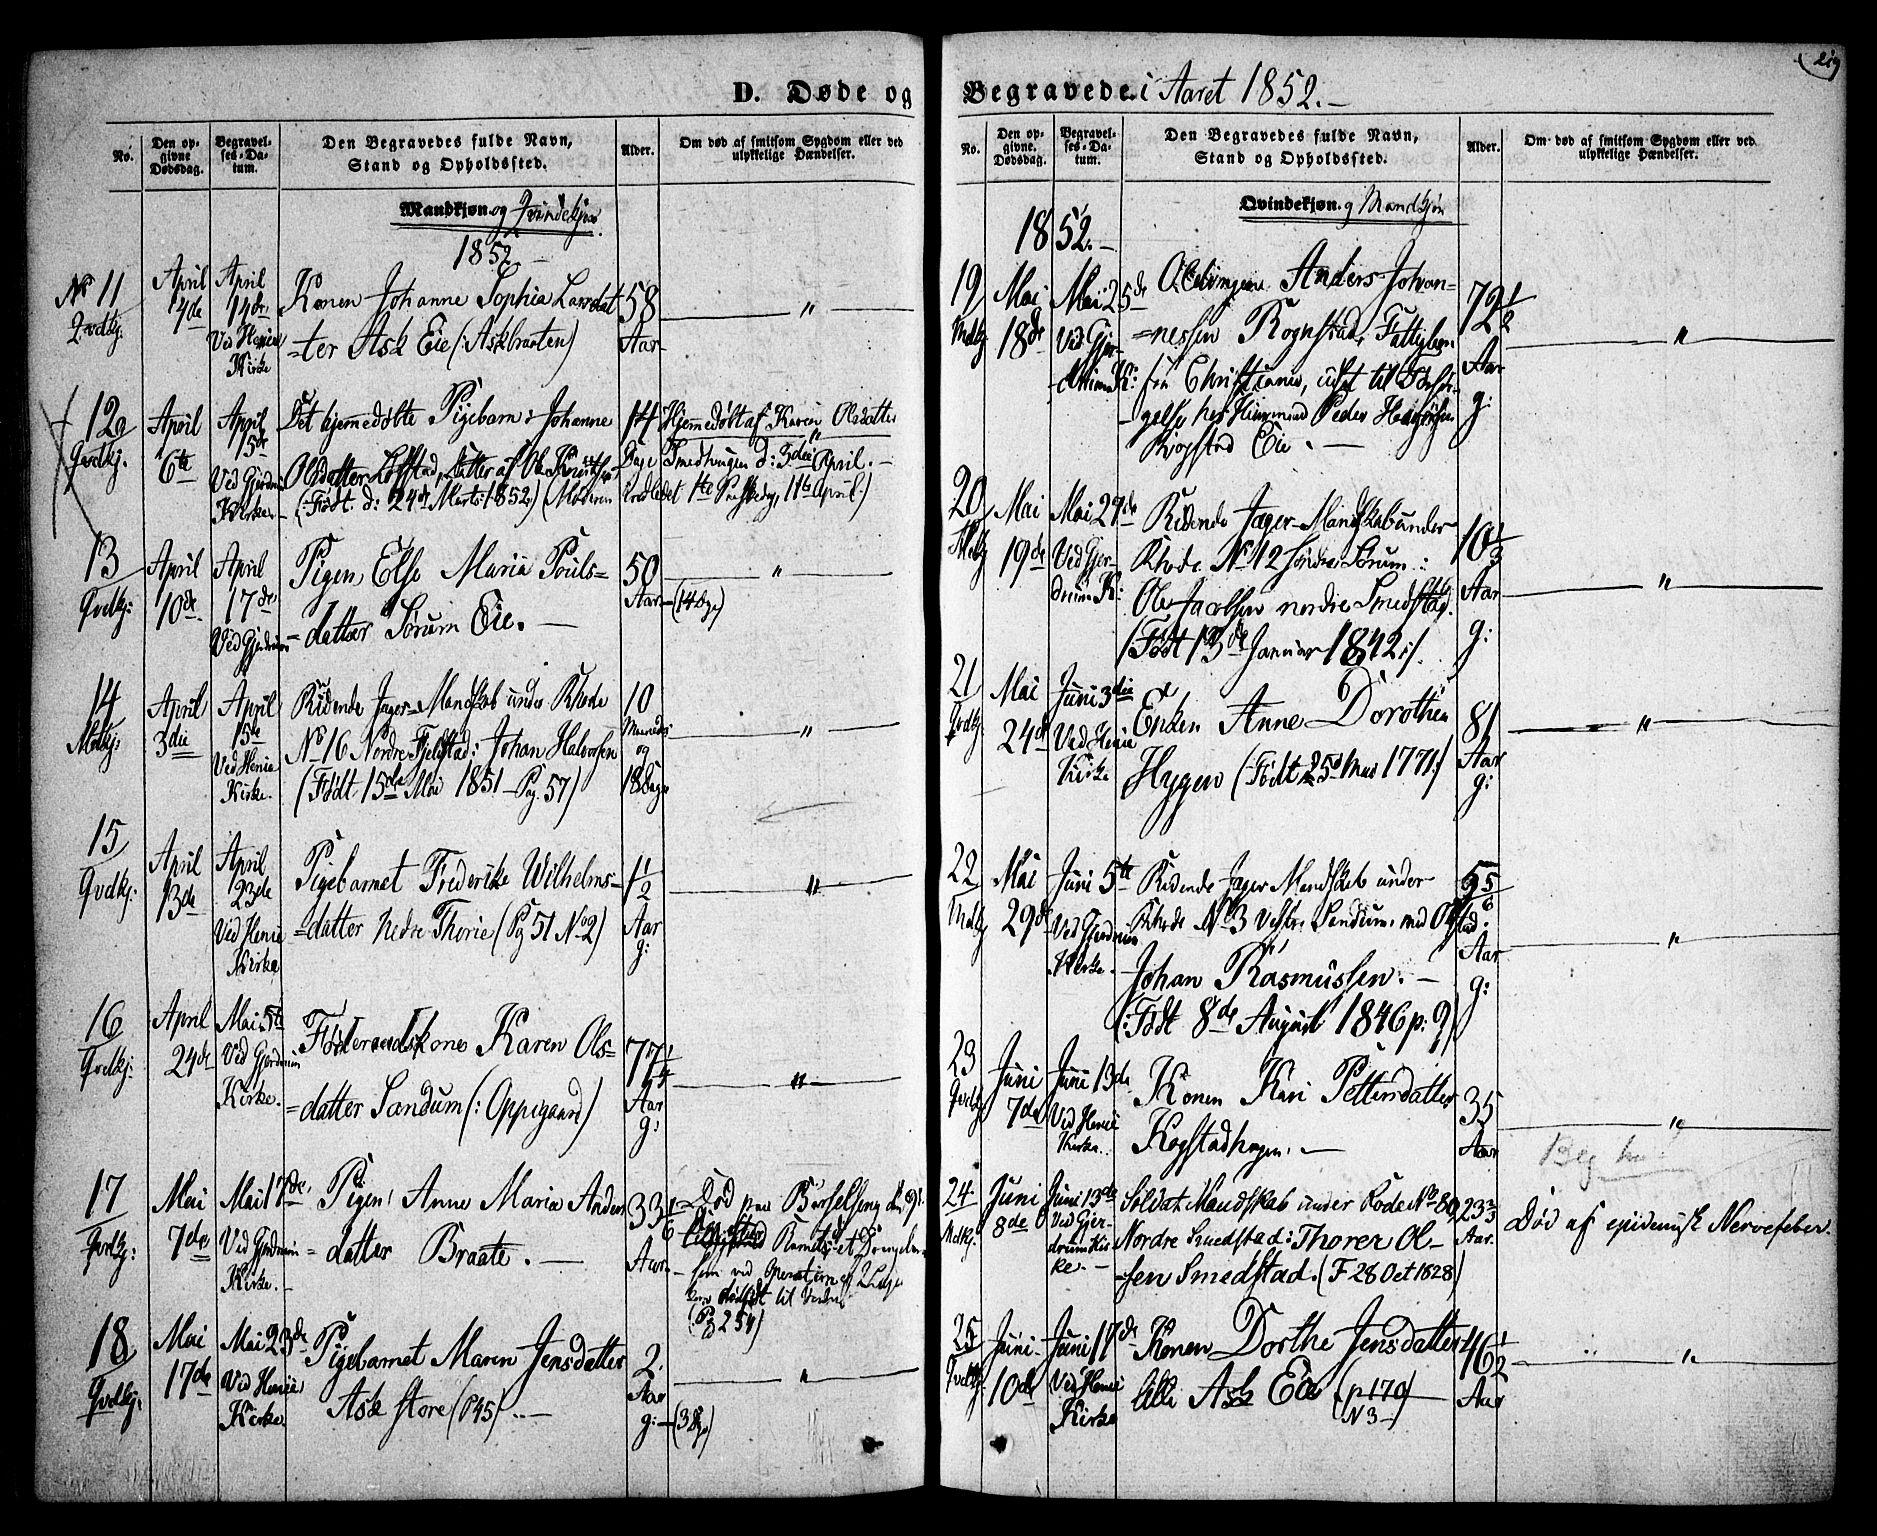 219
D. Døde og Begravede i Aaret 1852.
No.
Den opgivne Dødsdag.
Begravelses-Datum.
Den Begravedes fulde Navn,
Stand og Opholdssted.
Alder.
Om død af smitsom Sygdom eller ved
ulykkelige Hændelser.
Mandkjøn og Qvindekjøn.
1852
No 11
Qvdkj.
April
4de
April
14de
Ved Henie
Kirke
Konen Johanne Sophia Larsdat
=ter Ask Eie (: Askbraaten)
58
Aar
"
12a
Qvdkj.
April
6te
April
15de
Ved Gjerdrum
Kirke.
Det hjemmedøbte Pigebarn: Johanne
Olsdatter Løfstad, datter af Ole Knudsen
(: Født d: 24de Marts 1852) (Moderen
14
Dage
Hjemmedøbt af Karen Olsdatter
Smedhugen d: 3die April.
11te April.)
13
Qvdkj:
April
10de
April
17de
Ved Gjerdrum
Pigen Else Maria Pouls=
=datter Sørum Eie.
50
Aar
(14 Dge)
"
14
Mdkj:
April
3die
April
15de
Ved Henie
Kirke.
Ridende Jæger-Mandskab under Rhode
No 16 Nordre Fjelstad: Johan Halvorsen
(Født 15de Mai 1851 Pag. 57)
10
Maaneder
og
18 Dage
"
15
Qvdkj:
April
13de
April
23de
Ved Henie
Kirke
Pigebarnet Frederike Wilhelms=
=datter nedre Thorie (Pg 51 No 2)
1½
Aar
g:
"
16
Qvdkj:
April
24de
Mai 5te
Ved Gjerdrum
Kirke.
Føderaadskone Karen Ols=
=datter Sandum (: Oppegaard)
77¼
Aar
g:
"
17
Qvdkj:
Mai
7de
Mai 17de
Ved Gjerdrum
Kirke.
Pigen Anne Maria Anders
=datter Braate.
33 1/6
Aar
Død paa Barselseng
ved Operation
dødfødt til Verden
(Pg 254)
18
Qvdkj.
Mai
17de
Mai 23de
Ved Henie
Kirke
Pigebarnet Maren Jensdatter
Ask store (P 45)
2
Aar
g:
(3 Dge)
"
No.
Den opgivne Dødsdag.
Begravelses-Datum.
Den Begravedes fulde Navn,
Stand og Opholdssted.
Alder.
Om død af smitsom Sygdom eller ved
ulykkelige Hændelser.
Qvindekjøn. og Mandkjøn
1852.
19
Mdkj
Mai
18de
Mai 25de
Ved Gjer-
drum K:
Anders Johan=
=nessen Rognstad, Fattiglem
fra Christiania, udsat til Forsør-
gelse hos Huusmand Peder
Kogstad Eie.
72½
Aar
g:
"
20
Mdkj
Mai
19de
Mai 29de
Ved Gjer-
drum K:
Ridende Jæger-Mandskab under
Rhode No 12 søndre Sørum:
Ole Jacobsen nordre Smedstad.
(Født 13de Januar 1842:)
10⅓
Aar
g:
"
21
Qvdkj
Mai
24de
Juni 3die
Ved Henie
Kirke
Enken Anne Dorothea
Hygen (Født 25de Mai 1771:)
81
Aar
g:
"
22
Mdkj
Mai
29de
Juni 5te
Ved Gjerdrum
Kirke.
Ridende Jæger Mandskab under
Rhode No 3 Vestre Sandum med Olstad:
Johan Rasmussen.
(: Født 8de August 1846 p: 9)
5 5/6
Aar
g:
"
23
Qvdkj
Juni
7de
Juni 13de
Ved Henie
Kirke.
Konen Kari Pettersdatter
Kogstadhagen.
35
Aar
"
24.
Mdkj.
Juni
8de
Juni 13de
Ved Gjer-
drum Kir-
ke.
Soldat-Mandskab under Rode No 80,
Nordre Smedstad: Thorer Ol-
=sen Smedstad. (F 28 Oct 1828)
23⅔
Aar.
Død af epidemisk Nervefeber.
25
Qvdkj
Juni
10de
Juni 17de
Ved Henie
Kirke
Konen Dorthe Jensdatter
lille Ask Eie (p 170)
N 3
46½
Aar
"